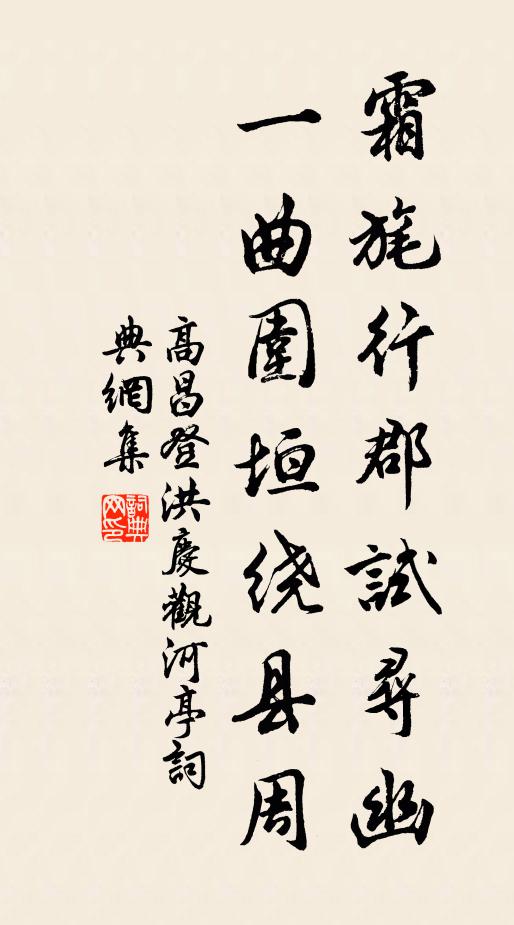 霜旄行郡試尋幽
一曲圍垣绕县周
高昌登洪慶觀河亭詞
典網集
詞典網印